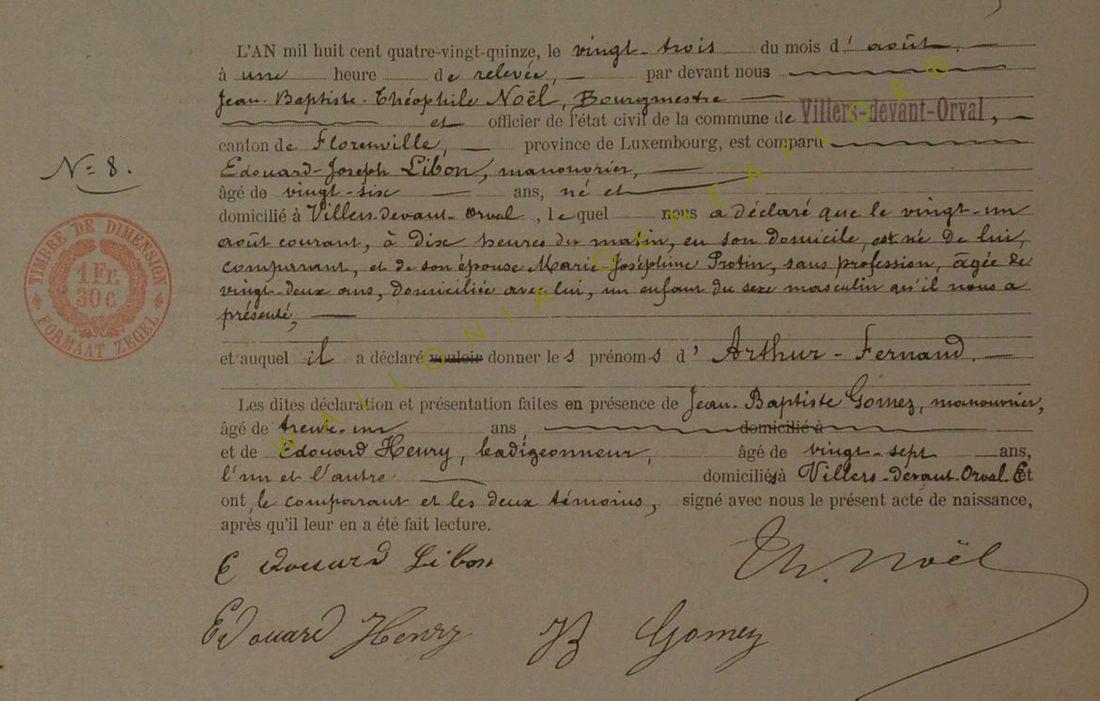 L'AN mil huit cent quatre-vingt-quinze, le vingt-trois du mois d' août,
à une heure de relevée, par devant nous
Jean-Baptiste-Théophile Noël, Bourgmestre
et officier de l'état civil de la commune de Villers-devant-Orval,
canton de Florenville, province de Luxembourg, est comparu
N° 8.
Edouard-Joseph Libon, manouvrier,
âgé de vingt-six ans, né et
domicilié à Villers-devant-Orval, lequel nous a déclaré que le vingt-un
août courant, à dix heures du matin, en son domicile, est né de lui,
comparant, et de son épouse Marie-Joséphine Protin, sans profession, âgée de
vingt-deux ans, domiciliée avec lui, un enfant du sexe masculin qu'il nous a
présenté,
TIMBRE DE DIMENSION
1 Fr.
30 C.
FORMAAT ZEGEL
et auquel il a déclaré vouloir donner les prénoms d' Arthur-Fernand.
Les dites déclaration et présentation faites en présence de Jean-Baptiste Gomez, manouvrier,
âgé de trente-un ans, domicilié à
et de Edouard Henry, badigeonneur, âgé de vingt-sept ans,
l'un et l'autre domiciliés à Villers-devant-Orval. Et
ont, le comparant et les deux témoins, signé avec nous le présent acte de naissance,
après qu'il leur en a été fait lecture.
Edouard Libon Th. Noël
Edouard Henry JB Gomez
WALLONIA GENEALOR ®